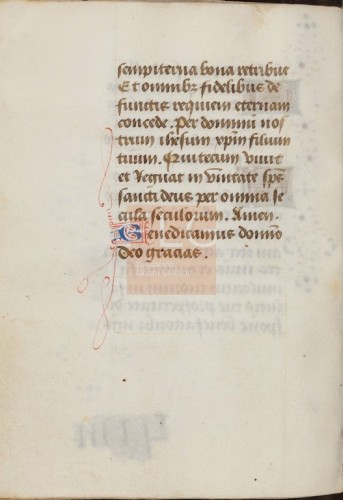 sempiterna bona retribue
Et omnibꝫ fidelibus de
functis requiem eternam
concede. Per dominū nos
trum ihesum xp̄m filium
tuum. Qui tecum viuit
et Regnat in vnitate sp̄s
sancti deus per omnia se
cula seculorum. Amen.
Benedicamus domino
Deo gracias.